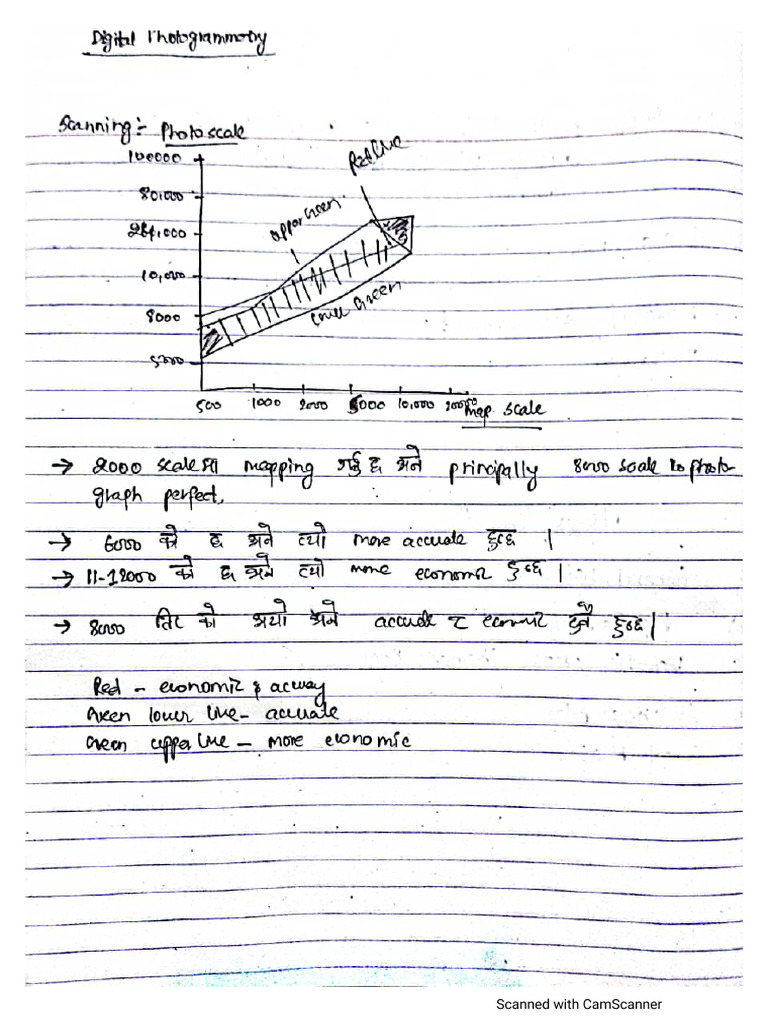 Digital Photogrammetry
Scanning:- Photo scale
100000
80,000
Red line
upper Green
10,000
8000
lower Green
5000
500 1000 2000 5000 10,000 20000 Map scale
→ 2000 scale मा mapping गर्नु छ भने principally 8000 scale को photo-
graph perfect.
→ 6000 को छ भने त्यो more accurate हुन्छ |
→ 11-12000 को छ भने त्यो more economic हुन्छ |
→ 8000 तिर को भयो भने accurate र economic दुवै हुन्छ |
Red - economic & accuracy
Green lower line - accurate
Green upper line - more economic
Scanned with CamScanner